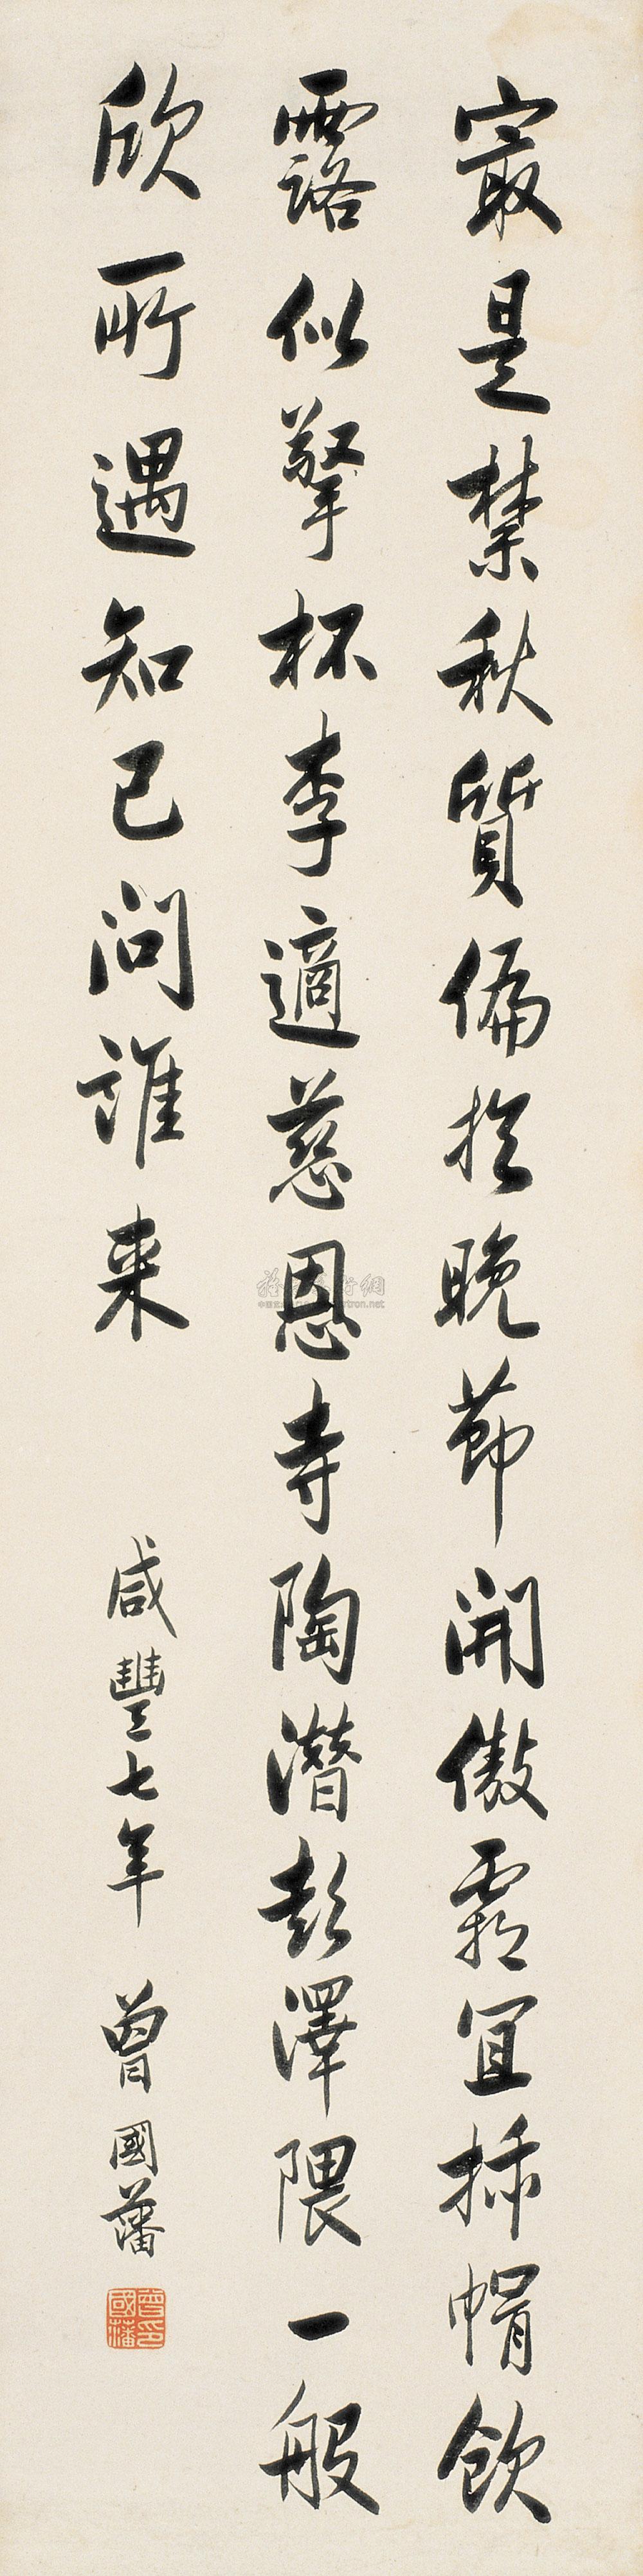 冣是禁秋質偏於晚節開傲霜宜插帽飲
露似擎杯李適慈恩寺陶潛彭澤隈一般
欣所遇知己問誰来
咸豐七年 曾國藩
曾印國藩